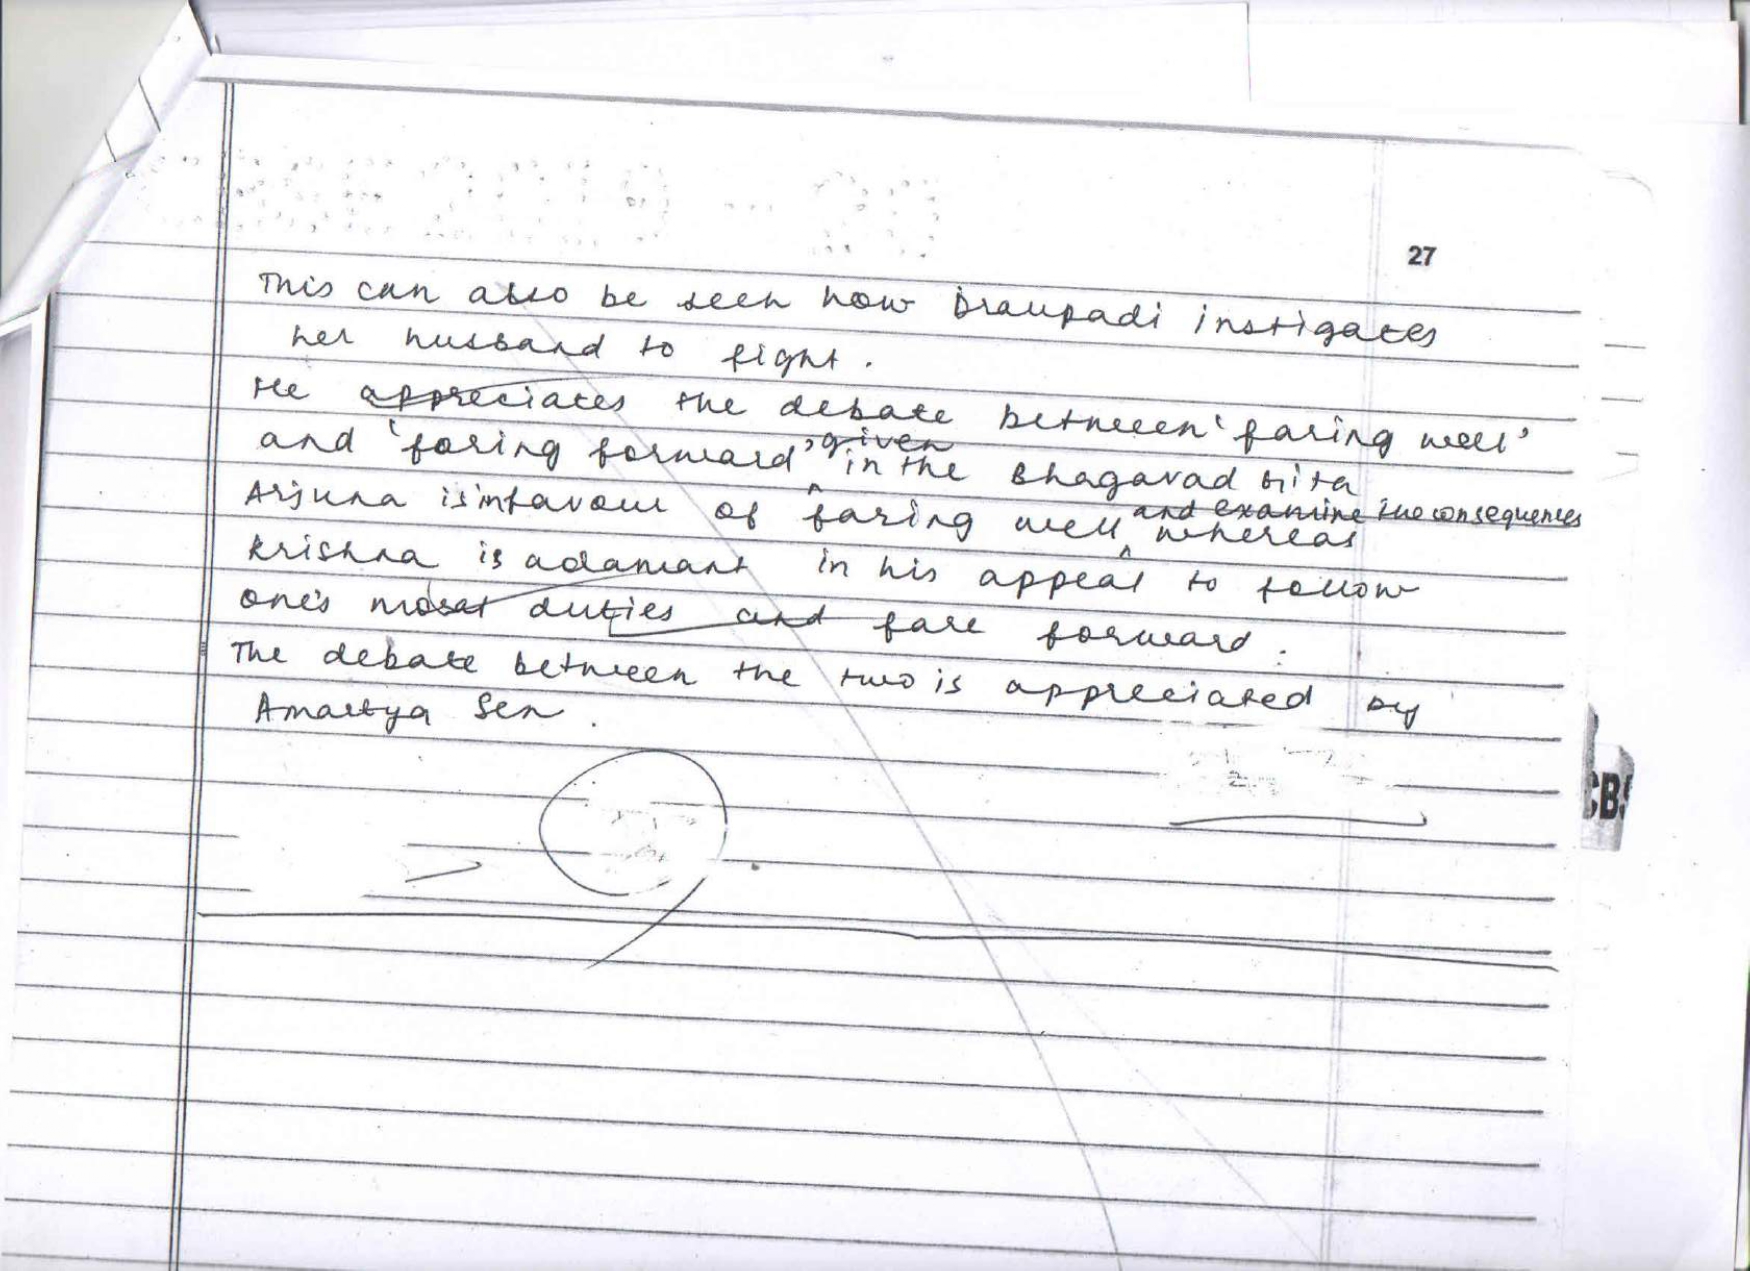 27
This can also be seen how Draupadi instigates
her husband to fight.
He appreciates the debate between 'faring well'
and 'faring forward' given in the Bhagavad Gita
Arjuna is in favour of faring well and examine the consequences whereas
Krishna is adamant in his appeal to follow
one's moral duties and fare forward.
The debate between the two is appreciated by
Amartya Sen.
CBS